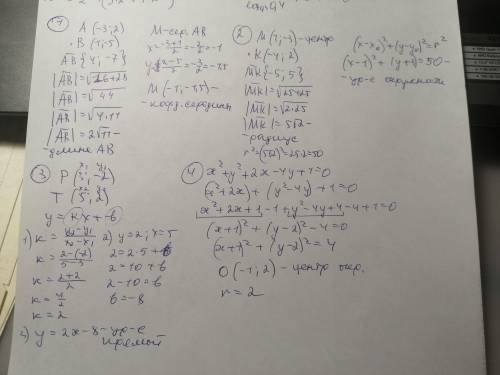 ① A (-3; 2)
B (1; -5)
AB {4; -7}
|AB| = √16+28
|AB| = √44
|AB| = √4·11
|AB| = 2√11 -
- длина AB
M - сер. AB
x = -3+1/2 = -2/2 = -1
y = 2-5/2 = -3/2 = -1,5
M (-1; -1,5) -
- коорд. середины
② M (1; -3) - центр
K (-4; 2)
MK {-5; 5}
|MK| = √25+25
|MK| = √2·25
|MK| = 5√2 -
- радиус
r² = (5√2)² = 25·2 = 50
(x-x₀)² + (y-y₀)² = r²
- ур-е окружности
③ P (3; -2)
T (5; 2)
y = kx + b
1) k = y₂-y₁/x₂-x₁
k = 2-(-2)/5-3
k = 2+2/2
k = 4/2
k = 2
2) y = 2; x = 5
2 = 2·5 + b
2 = 10 + b
2 - 10 = b
b = -8
y = 2x - 8 - ур-е
прямой
④ x² + y² + 2x - 4y + 1 = 0
(x² + 2x) + (y² - 4y) + 1 = 0
x² + 2x + 1 - 1 + y² - 4y + 4 - 4 + 1 = 0
(x+1)² + (y-2)² - 4 = 0
(x+1)² + (y-2)² = 4
O (-1; 2) - центр окр.
r = 2